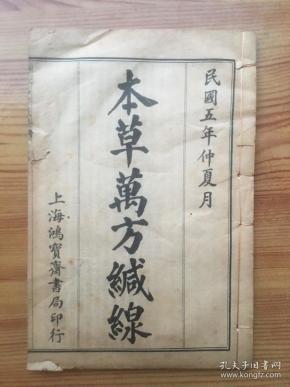 民國五年仲夏月
本草萬方鍼線
上海鴻寶齋書局印行
孔夫子旧书网